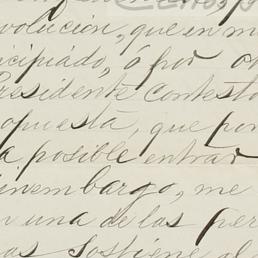 volución, que en m
cipiado, ó por o
Presidente contestó
opuesta, que por
a posible entrar
inembargo, me
n una de las per
as sostiene el